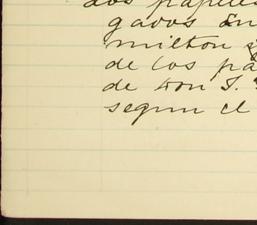 dos papeles
gados en
milton s
de los pa
de don S.
segun el